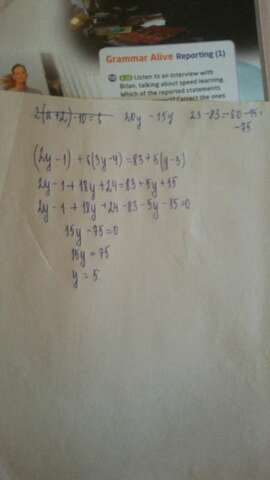 Grammar Alive Reporting (1)
Listen to an interview with
Brian, talking about speed learning.
which of the reported statements
20y - 15y
(2y-1) + 6(3y-4) = 83 + 5(y-3)
2y - 1 + 18y + 24 = 83 + 5y + 15
2y - 1 + 18y + 24 - 83 - 5y - 15 = 0
15y - 75 = 0
15y = 75
y = 5